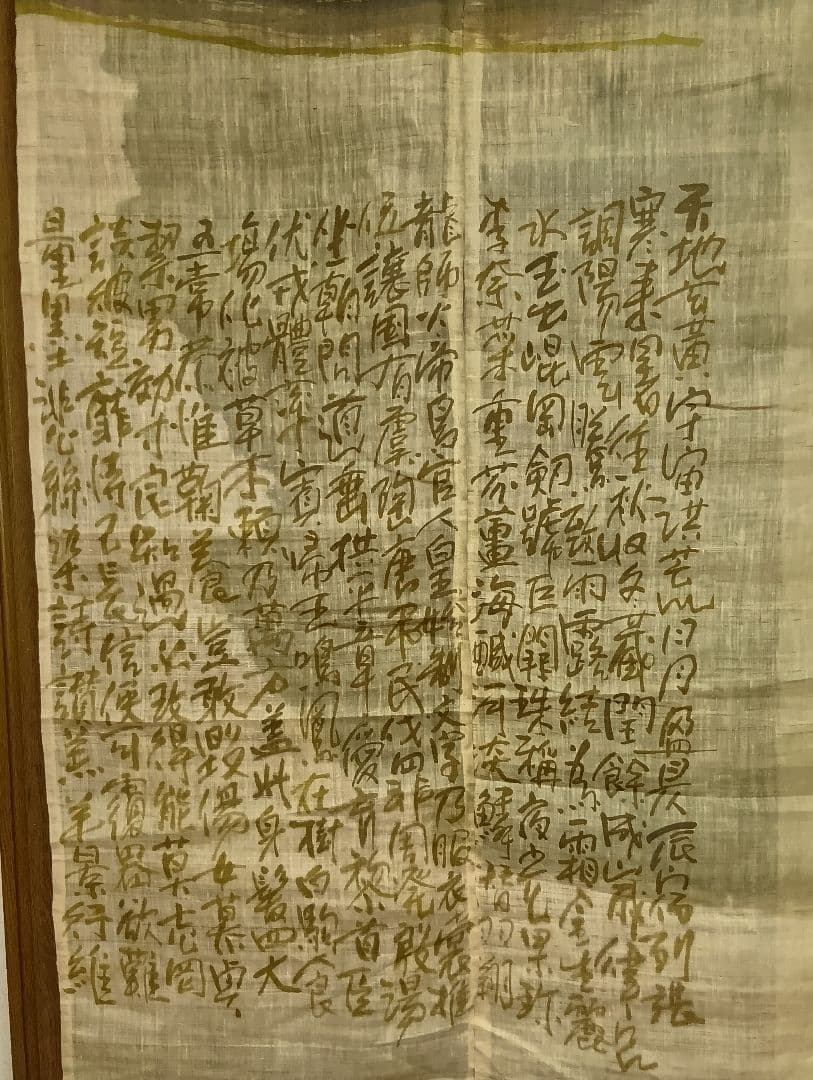 天地玄黃宇宙洪荒日月盈昃辰宿列張
寒来暑往秋收冬藏閏餘成歲律呂
調陽雲騰致雨露結為霜金生麗
水玉出崐岡劍號巨闕珠稱夜光果珍
李柰菜重芥薑海鹹河淡鱗潛羽翔
龍師火帝鳥官人皇始制文字乃服衣裳推
位讓國有虞陶唐弔民伐罪周發殷湯
坐朝問道垂拱平章愛育黎首臣
伏戎體率賓帰王鳴鳳在樹白駒食
場化被草木賴及萬方蓋此身髮四大
五常恭惟鞠養豈敢毀傷女慕貞
絜男效才良知過必改得能莫忘罔
談彼短靡恃己長信使可覆器欲難
量墨悲絲染詩讚羔羊景行維